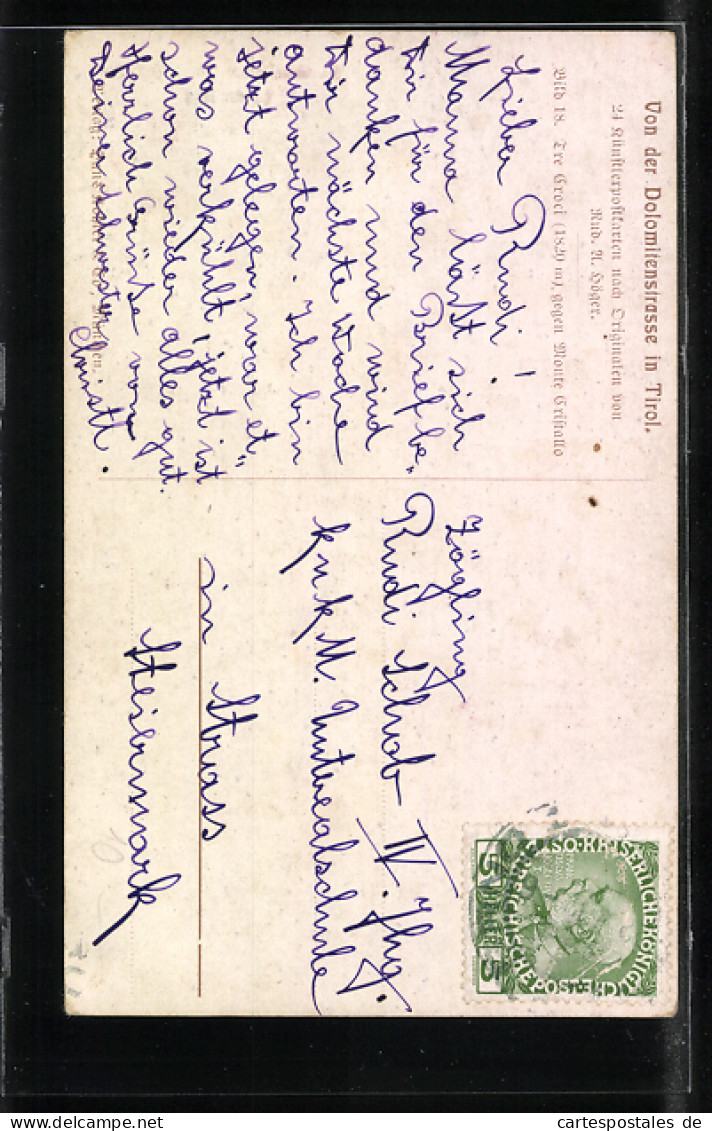 Von der Dolomitenstrasse in Tirol.
24 Künstlerpostkarten nach Originalen von
Rud. A. Höger.
Bild 18. Tre Croci (1829 m), gegen Monte Cristallo
Lieber Rudi!
Mama läßt sich
Dir für den Brief be„
danken und wird
Dir nächste Woche
antworten. Ich bin
jetzt gelegen, war et„
was verkühlt, jetzt ist
schon wieder alles gut.
Herzlich Grüße von
Deiner Schwester
Christl.
Zögling
Rudi Schob IV. Jhg.
k. u. k. M. Unterrealschule
in Strass
Steiermark
KAISERLICHE KÖNIGLICHE
ÖSTERREICHISCHE POST
5 HELLER 5
cartespostales de